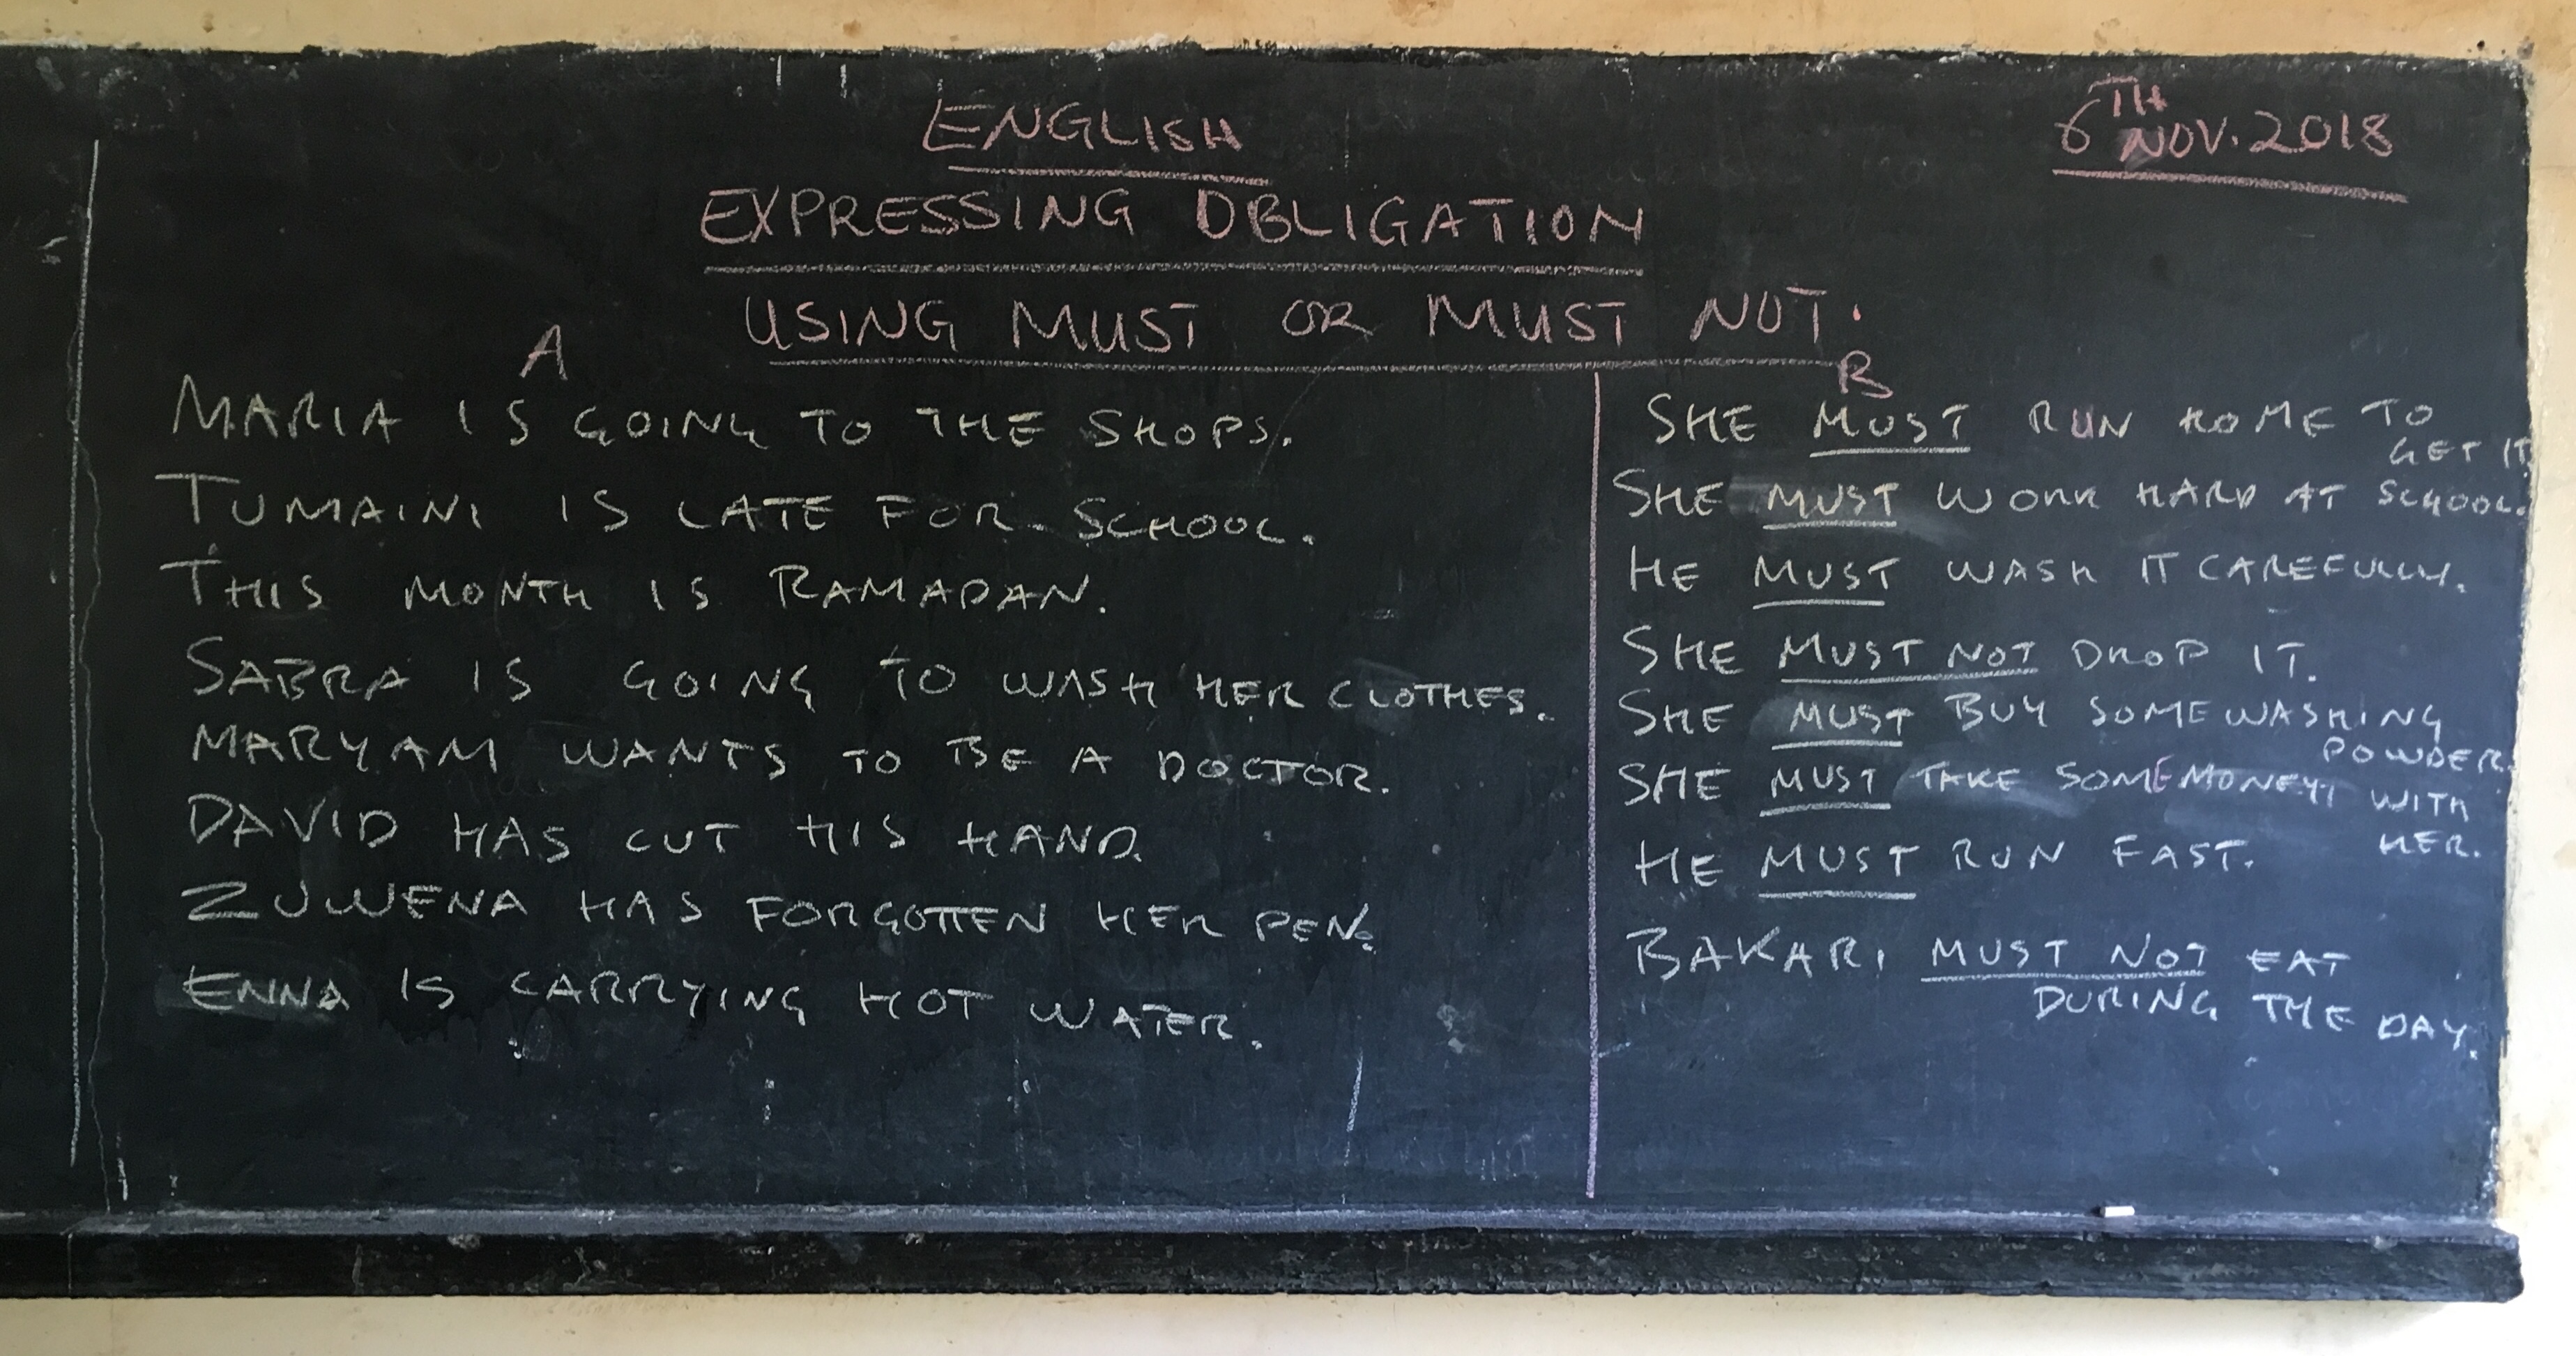 ENGLISH
6TH NOV. 2018
EXPRESSING OBLIGATION
USING MUST OR MUST NOT.
A
MARIA IS GOING TO THE SHOPS.
TUMAINI IS LATE FOR SCHOOL.
THIS MONTH IS RAMADAN.
SABRA IS GOING TO WASH HER CLOTHES.
MARYAM WANTS TO BE A DOCTOR.
DAVID HAS CUT HIS HAND.
ZUWENA HAS FORGOTTEN HER PEN.
ENNA IS CARRYING HOT WATER.
B
SHE MUST RUN HOME TO
GET IT
SHE MUST WORK HARD AT SCHOOL.
HE MUST WASH IT CAREFULLY.
SHE MUST NOT DROP IT.
SHE MUST BUY SOME WASHING
POWDER.
SHE MUST TAKE SOME MONEY WITH
HER.
HE MUST RUN FAST.
BAKARI MUST NOT EAT
DURING THE DAY.